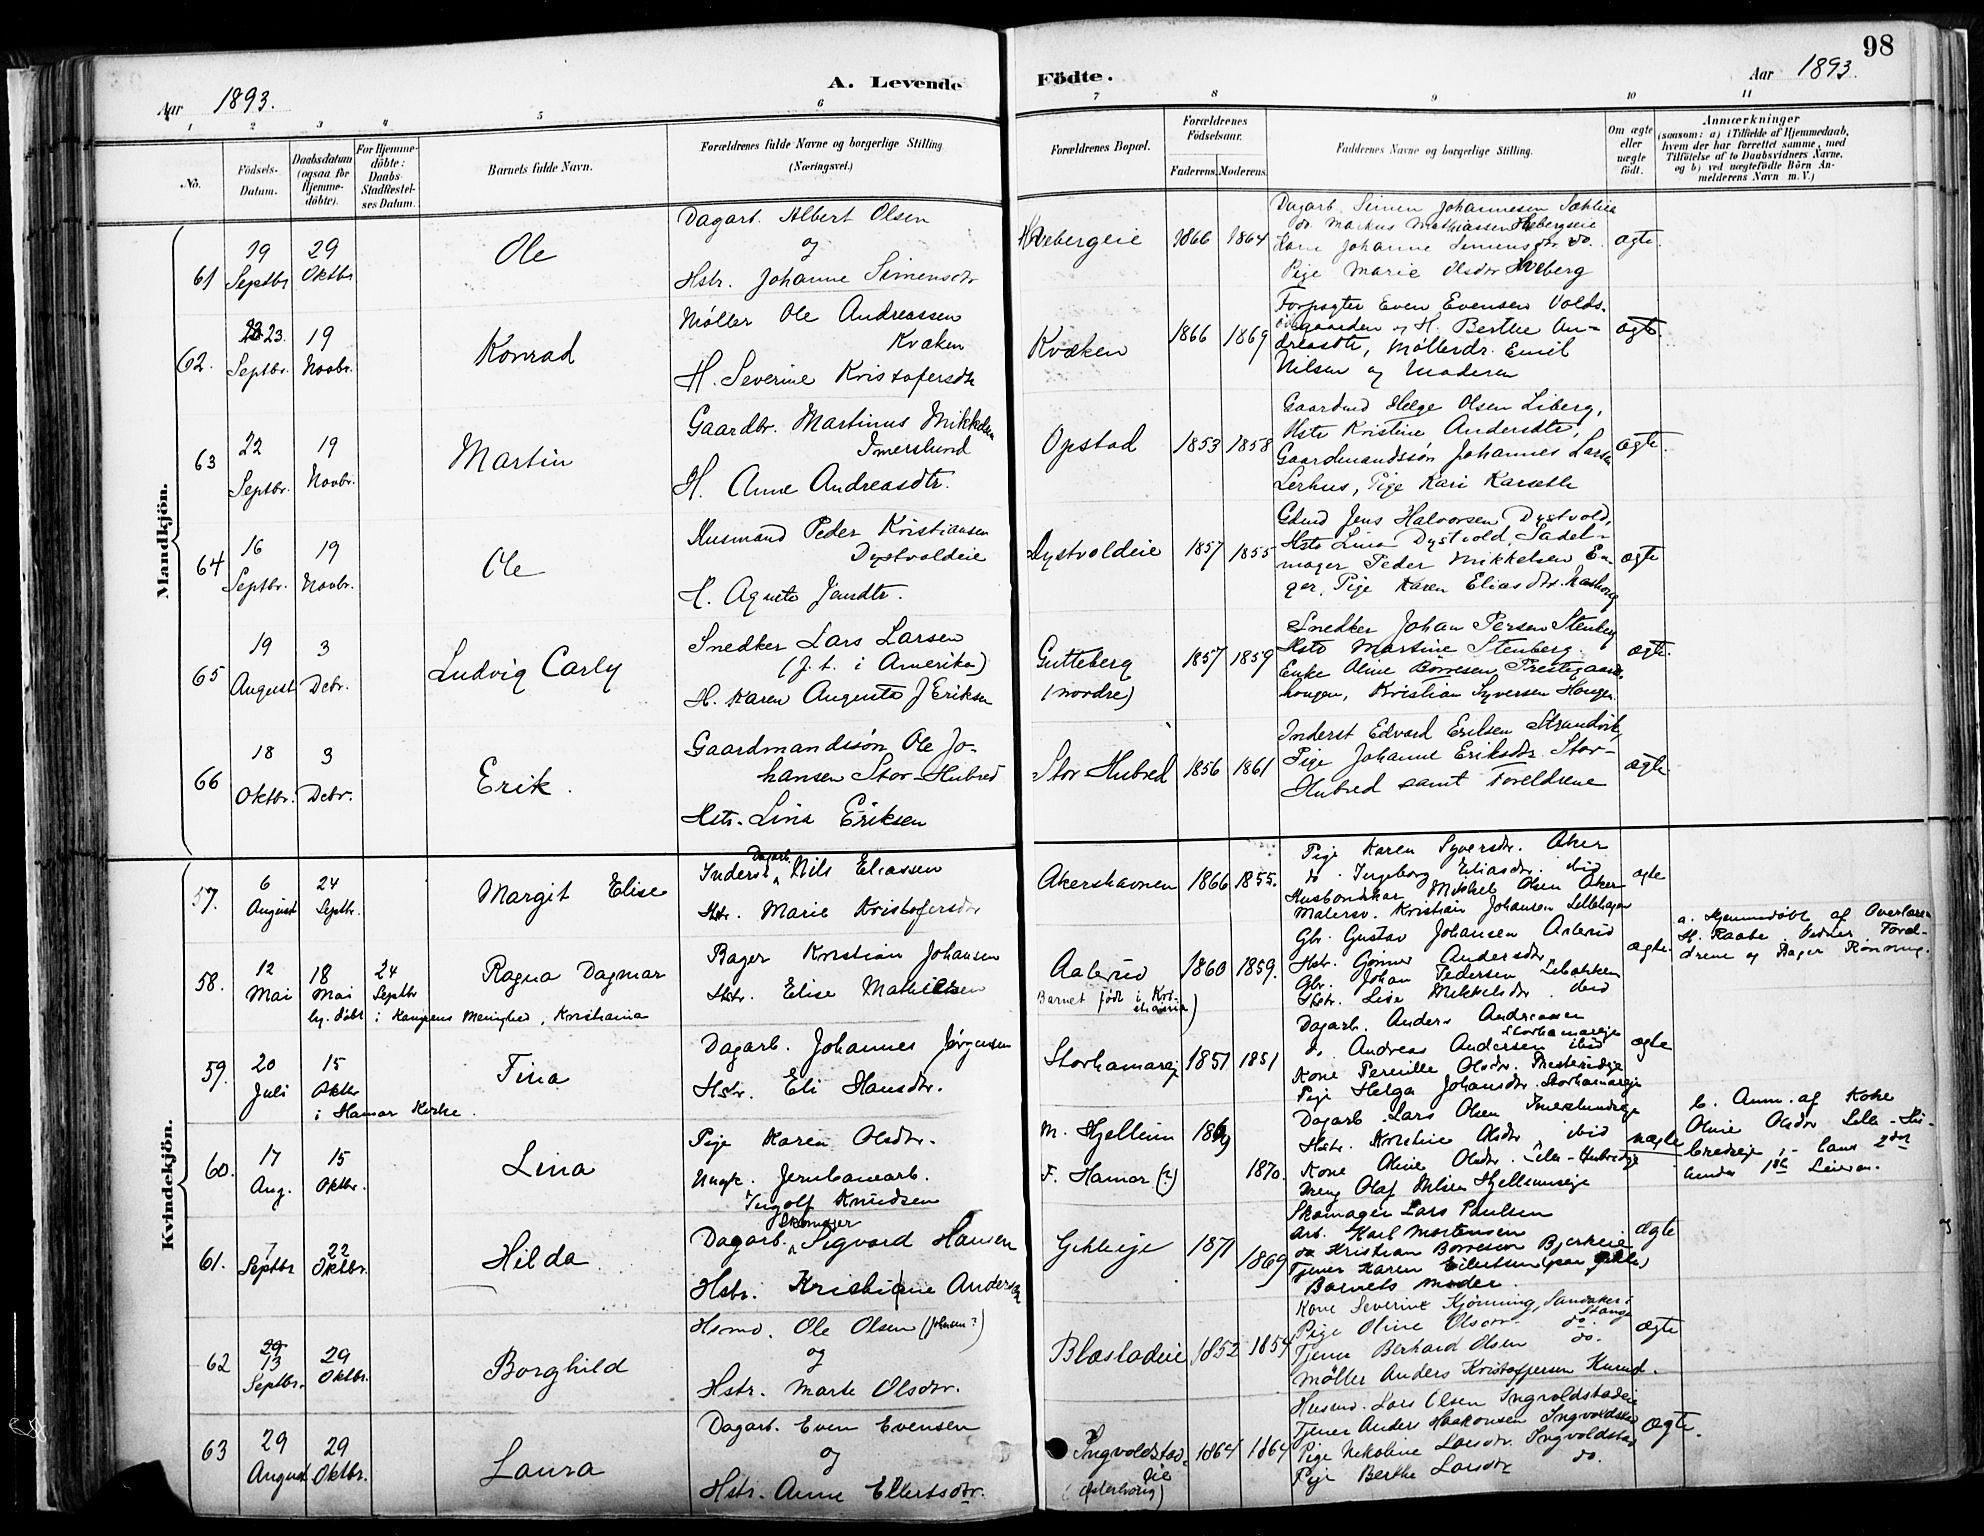 98
Aar 1893.
A. Levende
Födte.
Aar 1893.
1 2 3 4 5 6 7 8 9 10 11
No.
Födsels-Datum.
Daabsdatum (ogsaa for Hjemme-döbte).
For Hjemme-döbte: Daabs-Stadfæstelses Datum.
Barnets fulde Navn.
Forældrenes fulde Navne og borgerlige Stilling (Næringsvei.)
Forældrenes Bopæl.
Forældrenes Födselsaar.
Faderens. Moderens.
Faddernes Navne og borgerlige Stilling.
Om ægte eller uægte födt.
Anmærkninger
(saasom: a) i Tilfælde af Hjemmedaab,
hvem der har forrettet samme, med
Tilföielse af to Daabsvidners Navne,
og b) ved uægtefödte Börn An-
melderens Navn m. V.)
Mandkjön.
61
19 Septbr
29 Oktbr
Ole
Dagarb. Albert Olsen
og
Hstr. Johanne Simensdtr
Hvebergeie
1866 1864
Dagarb. Simen Johannesen
do. Markus Mathiassen Hvebergeie
Kone Johanne Simensdtr do.
Pige Marie Olsdtr Hveberg
ægte.
62.
23. Septbr.
19 Novbr.
Konrad
Møller Ole Andreassen
Kvæken
H. Severine Kristofersdtr
Kvæken
1866 1869
Forpagter Even Evensen Volds-
gaarden og H. Berthe An-
dreasdtr, Møllerdr. Emil
Nilsen og Moderen
ægte.
63
22 Septbr.
19 Novbr.
Martin
Gaardbr. Martinus Mikkelsen
Imerslund
H. Anne Andreasdtr.
Opstad
1853 1858
Gaardmd Helge Olsen Liberg,
Hstr Kristine Andersdtr,
Gaardmandssøn Johannes Larsen
Lerhus, Pige Kari Karseth
ægte.
64
16 Septbr.
19 Novbr.
Ole
Husmand Peder Kristiansen
Dystvoldeie
H. Agnete Jensdtr.
Dystvoldeie
1857 1855
Gdmd Jens Halvorsen Dystvold,
Hstr Lina Dystvold, Sadel-
mager Peder Mikkelsen En-
ger, Pige Karen Eliasdtr.
ægte
65
19 August
3 Debr.
Ludvig Carly
Snedker Lars Larsen
(f. t. i Amerika)
H. Karen Augusta J Eriksen
Gutteberg
(nordre)
1857 1859
Snedker Johan Persen Stenberg
Hstr Martine Stenberg.
Enke Oline Børresen Prestegaards-
haugen, Kristian Syversen Haugen.
ægte.
66
18 Oktbr.
3 Debr.
Erik.
Gaardmandssøn Ole Jo-
hansen Stor-Hubred
Hstr. Lina Eriksen
Stor Hubred
1856 1861
Inderst Edvard Erilsen Strandvik,
Pige Johanne Eriksdtr. Stor-
Hubred samt Foreldrene
ægte
Kvindekjön.
57.
6 August
24 Septbr.
Margit Elise
Inderst, Dagarb. Nils Eliassen
Hstr. Marie Kristofersdtr
Akershavnen
1866 1855.
Pige Karen Syversdtr. Aker
do. Ingeborg Eliasdtr. ibid
Husbondskar Mikkel Olsen Aker
Malersv. Kristian Johansen Lillehagen
ægte
58.
12 Mai
18 Mai
24 Septbr
hj. døbt i Kampens Menighed, Kristiania
Ragna Dagmar
Bager Kristian Johansen
Hstr. Elise Mathiesen
Aalerud
Barnet født i Kri-
stiania)
1860 1859.
Gbr. Gustav Johansen Aalerud
Hstr. Gønner Andersdtr
Gbr. Johan Pedersen
Hstr. Lise Mikkelsdtr. ibid
ægte.
a. Hjemmedøbt af Overlærer
H. Raabe. Vidner, Foræl-
drene og Bager Rønning.
59.
20 Juli
15 Oktbr
i Hamar Kirke.
Fina
Dagarb. Johannes Jørgensen
Hstr. Eli Hansdtr.
Storhamareje
1851 1851
Dagarb. Anders Andreassen
Storhamareje
do. Andreas Andersen ibid
Kone Pernille Olsdtr. Presterudeje
Pige Helga Johansdtr. Storhamareje
ægte
60.
17 Aug.
15 Oktbr.
Lina
Pige Karen Olsdtr.
Ungk. Jernbanearb.
Ingolf Knudsen
M. Hjellum
F. Hamar (?)
1869
1870.
Dagarb. Lars Olsen Imerslundeje
Hstr. Kristine Olsdtr, ibid
Kone Oline Olsdtr. Lille-Hubredeje
Dreng Olaf Nilsen Hjellumseje
uægte
b. Anm. af Kone
Oline Olsdtr Lille-Hu-
bredeje, - bans 2det
under 1ste Leierm.
61.
7 Septbr
22 Oktbr.
Hilda
Dagarb., Skomager Sigvard Hansen
Hstr. Kristine Andersen
Gihleeje
1871
1869
Skomager Lars Paulsen
Arb. Karl Mortensen
do Kristian Børresen Bjerkeeie
Tjener Karen Eilertsen (paa Gihle)
Barnets Moder.
ægte
62
29 13 Septbr.
29 Oktbr.
Borghild
Hsmd. Ole Olsen (Johnsen?)
og
Hstr. Marte Olsdtr.
Blæstadeie
1852 1854
Kone Severine Kjønning, Sandaker i
Stange
Pige Oline Olsdtr. do.
Tjener Berhard Olsen do.
Møller Anders Kristoffersen Kurud.
ægte
63
29 August
29 Oktbr.
Laura
Dagarb. Even Evensen
og
Hstr. Anne Ellertsdtr.
Ingvoldstad-
eie
(Østerhorig)
1864 1864
Husmd. Lars Olsen Ingvoldstadeie
Tjener Anders Haakonsen Ingvoldstad
Pige Nikoline Larsdtr. Ingvoldstad
Pige Berthe Larsdtr do.
ægte.